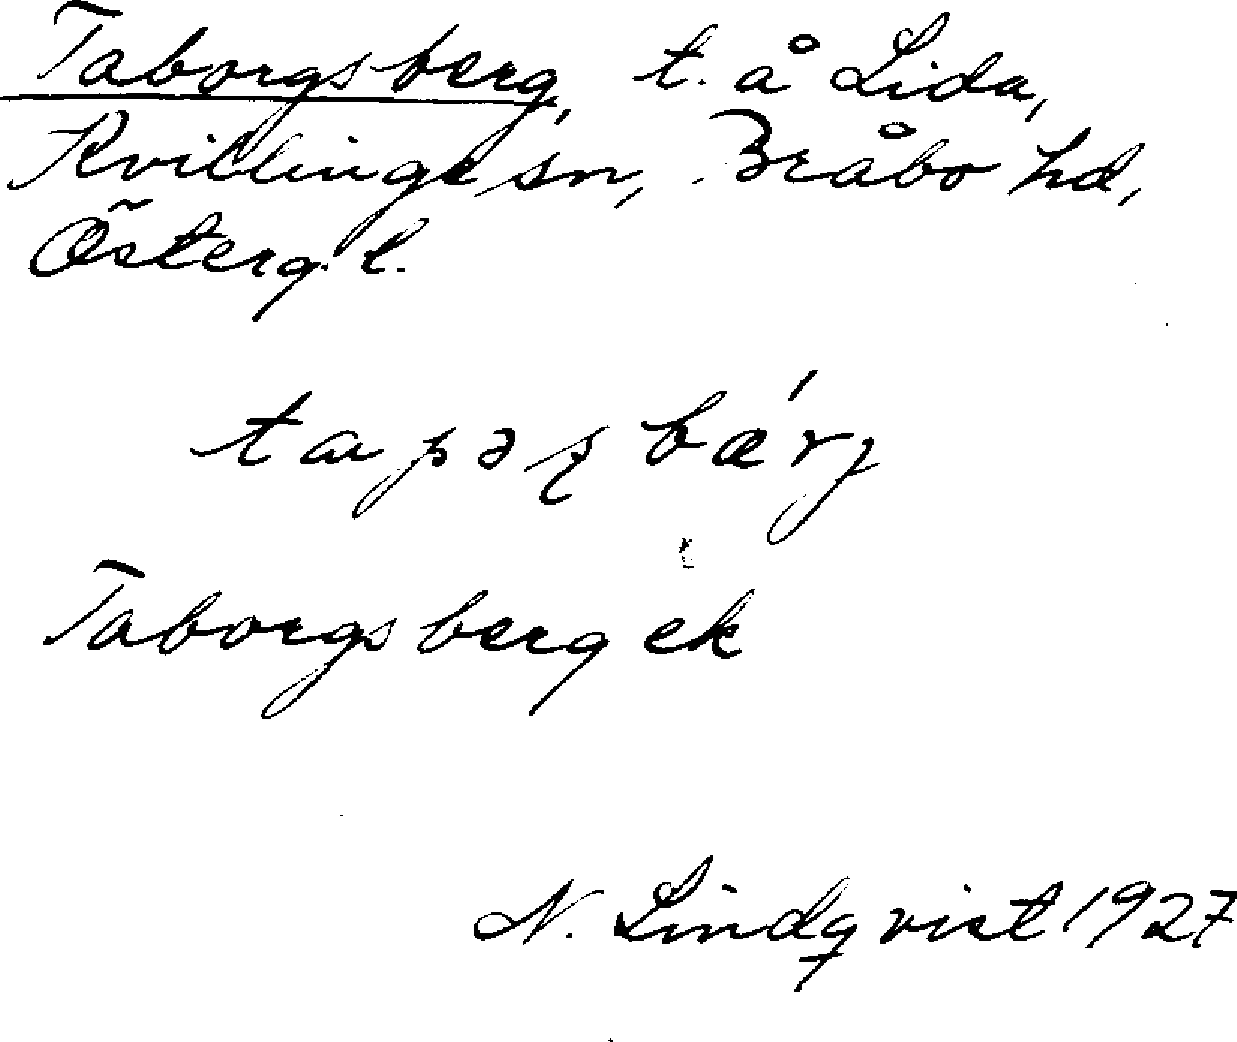 Taborgsberg, t. å Lida,
Kvillinge sn, Bråbo hd,
Österg. l.
Taborgsberg ek
N. Lindqvist 1927